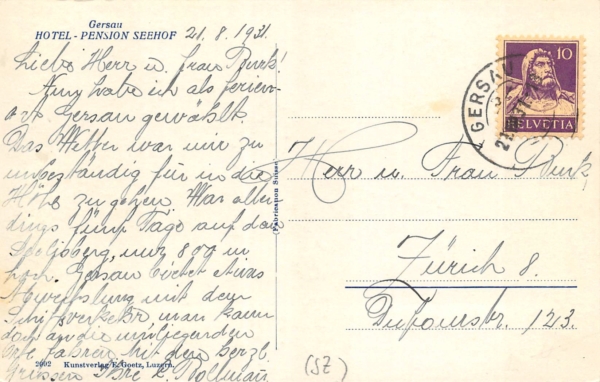 Gersau
HOTEL - PENSION SEEHOF 21.8.1931.
Liebe Herr u. Frau Burk!
habe ich als Ferien-
ort Gersau gewählt.
Das Wetter war mir zu
unbeständig für in die
Höhe zu gehen. War aller
dings fünf Tage auf dem
Seelisberg, nur 800 m
hoch. Gersau bietet etwas
Abwechslung mit dem
Schiffverkehr man kann
doch an die umliegenden
Orte fahren. Mit den herzl.
Grüssen Ihre
2602 Kunstverlag E. Goetz, Luzern.
(Fabrication Suisse)
10
HELVETIA
GERSAU
Herr u. Frau Burk,
Zürich 8.
Dufourstr. 123.
(SZ)